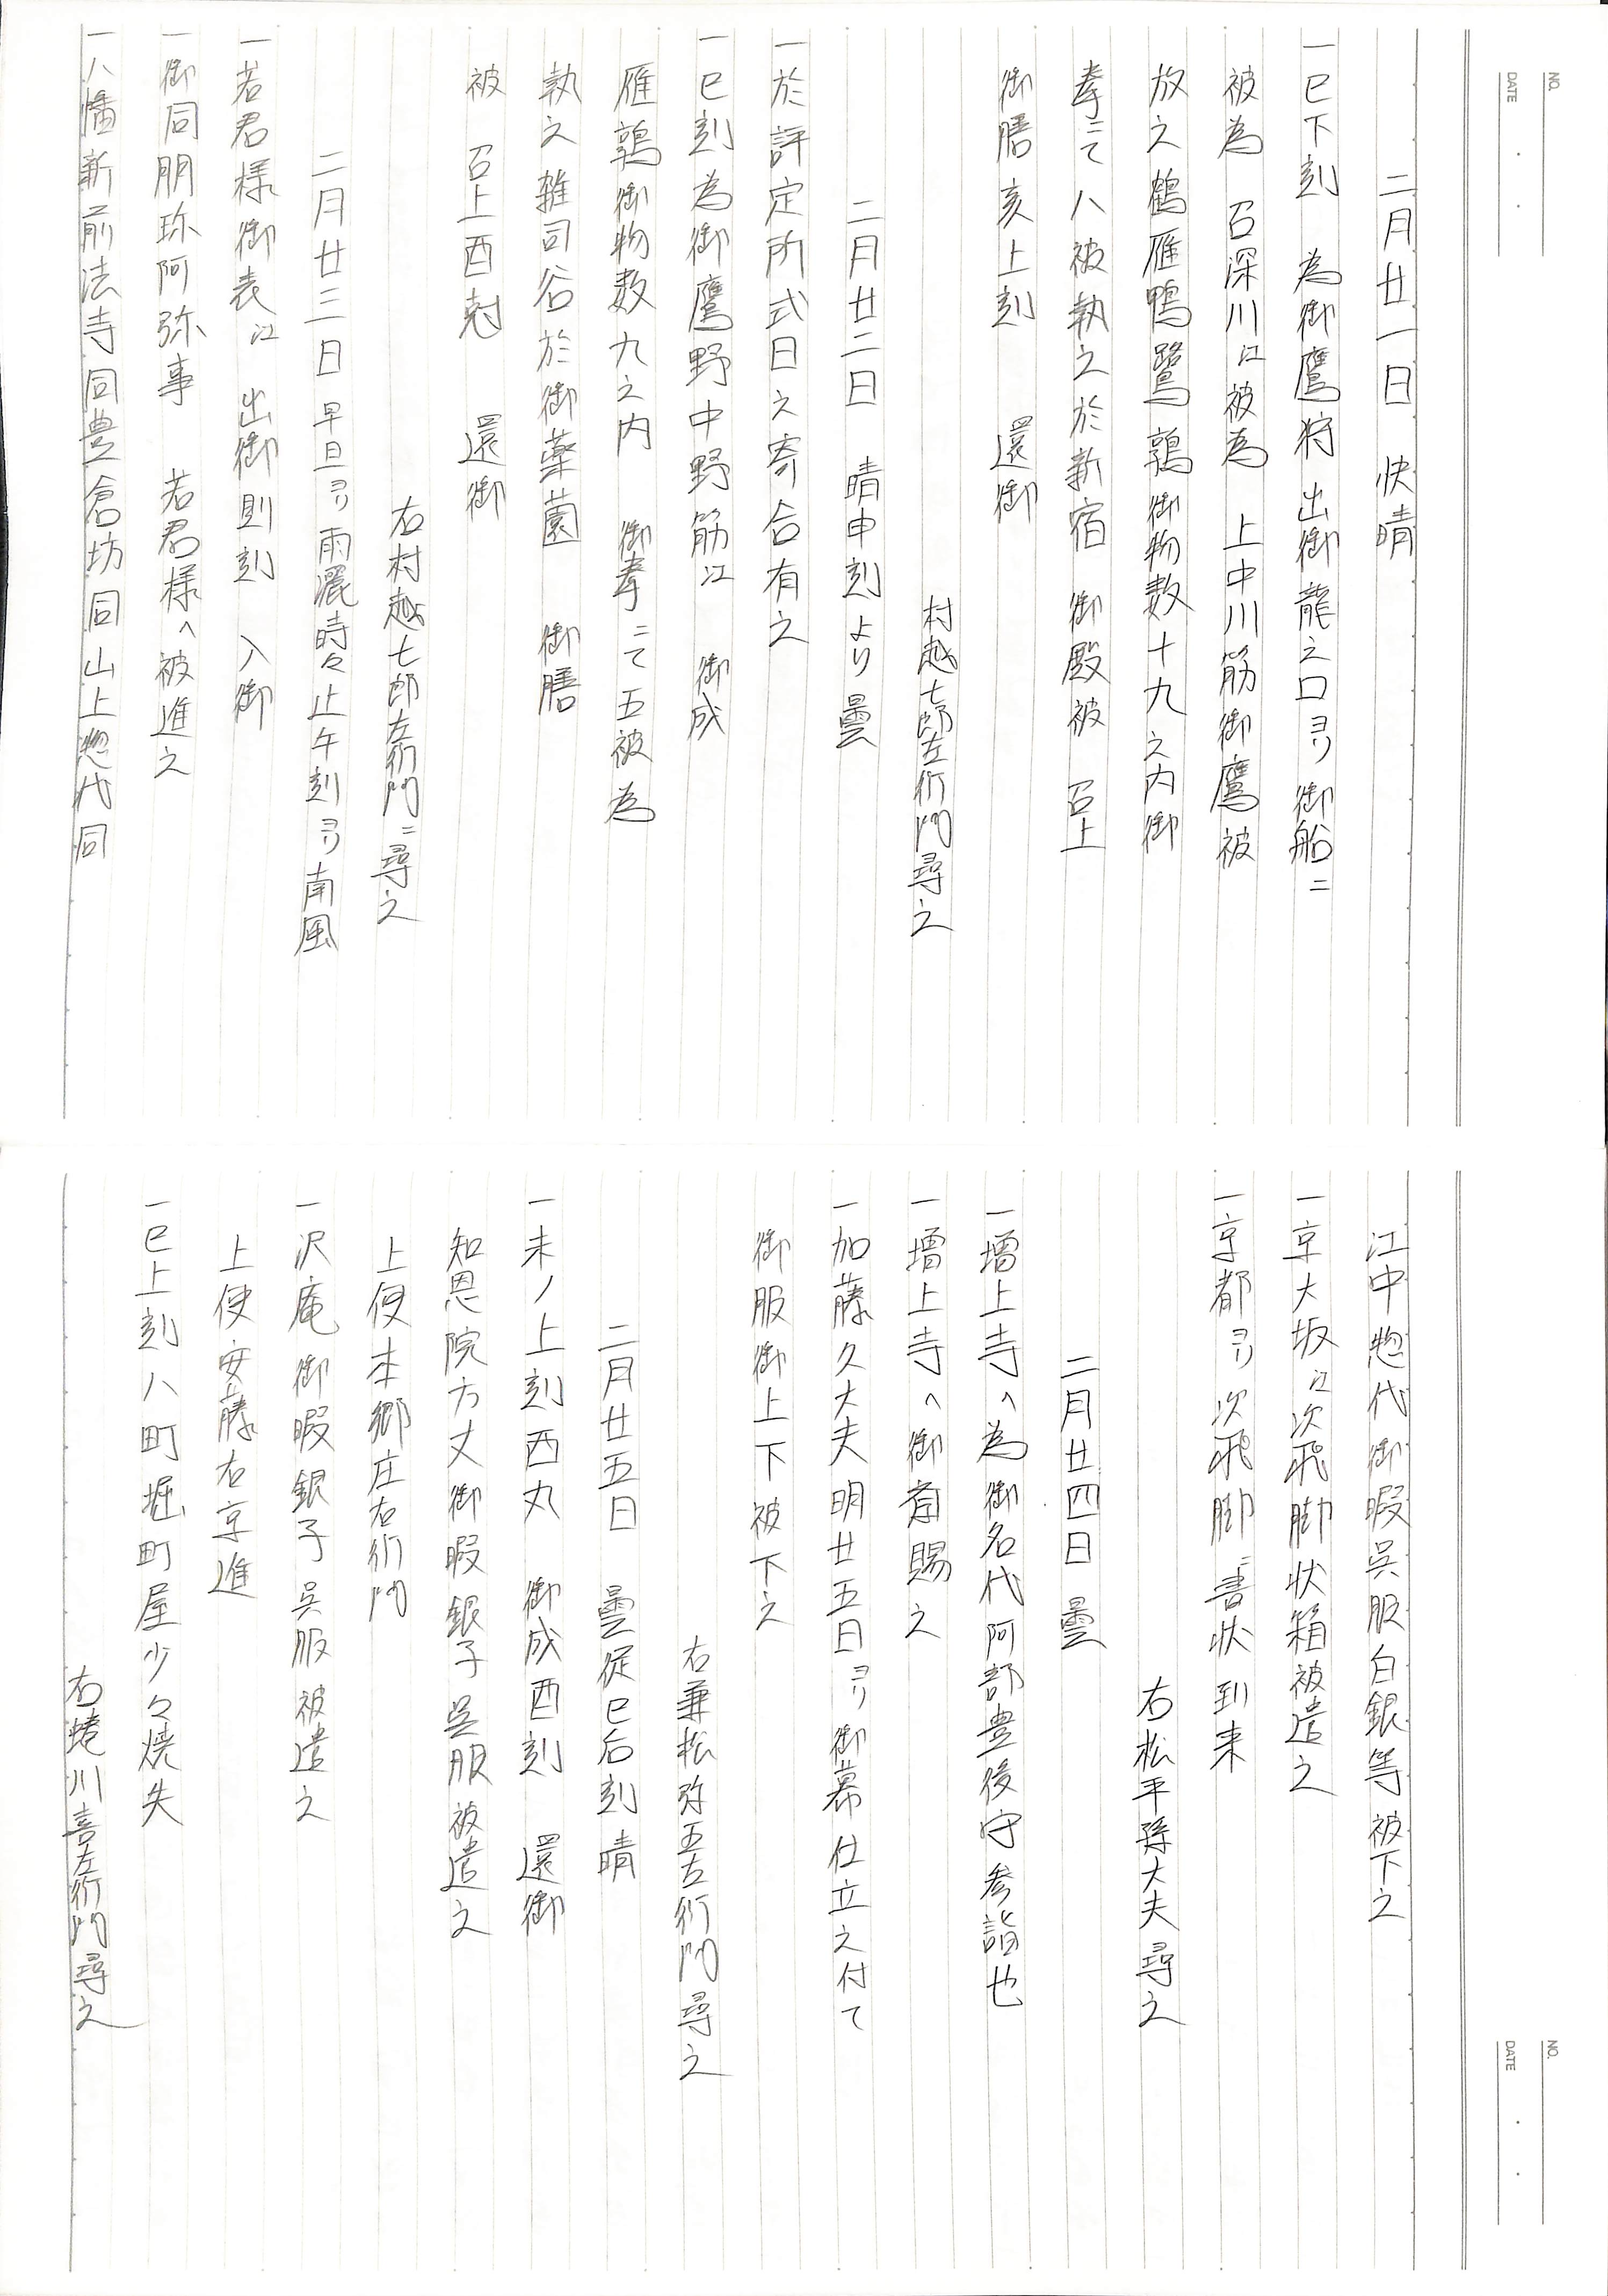 二月廿一日　快晴
一巳下刻　為御鷹狩　出御龍之口ヨリ御船ニ
被為　召深川江被為　上中川筋御鷹被
放之鶴雁鴨鷺鶉御物数十九之内御
拳ニて八被執之於新宿　御殿被　召上
御膳亥上刻　　還御
村越七郎左衛門尋之
二月廿二日　晴申刻より曇
一於評定所式日之寄合有之
一巳刻為御鷹野中野筋江　御成
雁鶉御物数九之内　御拳ニて五被為
執之雑司谷於御薬園　御膳
被　召上酉刻　　還御
右村越七郎左衛門ニ尋之
二月廿三日　早旦ヨリ雨灑時々止午刻ヨリ南風
一若君様御表江　出御則刻　入御
一御同朋珎阿弥事　若君様へ被進之
一八幡新前法寺同豊倉坊同山上惣代同
江中惣代御暇呉服白銀等被下之
一京大坂江次飛脚状箱被遣之
一京都ヨリ次飛脚書状到来
右松平孫大夫尋之
二月廿四日　曇
一増上寺へ為御名代阿部豊後守参詣也
一増上寺へ御賜之
一加藤久大夫明廿五日ヨリ御幕仕立之付て
御服御上下被下之
右兼松弥五左衛門尋之
二月廿五日　曇従巳后刻晴
一未ノ上刻西丸　御成酉刻　還御
知恩院方丈御暇銀子呉服被遣之
上使本郷庄右衛門
一沢庵御暇銀子呉服被遣之
上使安藤右京進
一巳上刻八町堀町屋少々焼失
右蜷川喜左衛門尋之
NO.
DATE
NO.
DATE